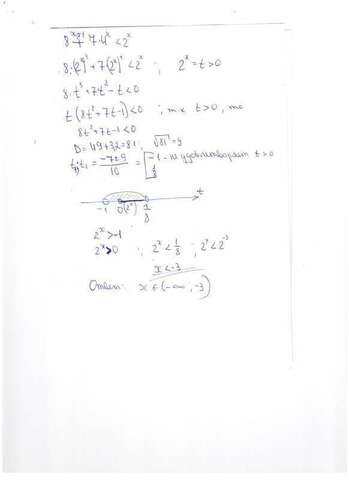 8^(x+1) + 7·4^x < 2^x
8·(2^x)^3 + 7(2^x)^2 < 2^x ; 2^x = t > 0
8·t^3 + 7t^2 - t < 0
t(8t^2 + 7t - 1) < 0 ; т.к t > 0, то
8t^2 + 7t - 1 < 0
D = 49 + 32 = 81, √81 = 9
= (-7±9)/16 = [-1 - не удовлетворяет t > 0
1/8
t
-1 0 (2^x) 1/8
2^x > -1
2^x > 0 ; 2^x < 1/8 ; 2^x < 2^-3
x < -3
Ответ: x ∈ (-∞; -3)